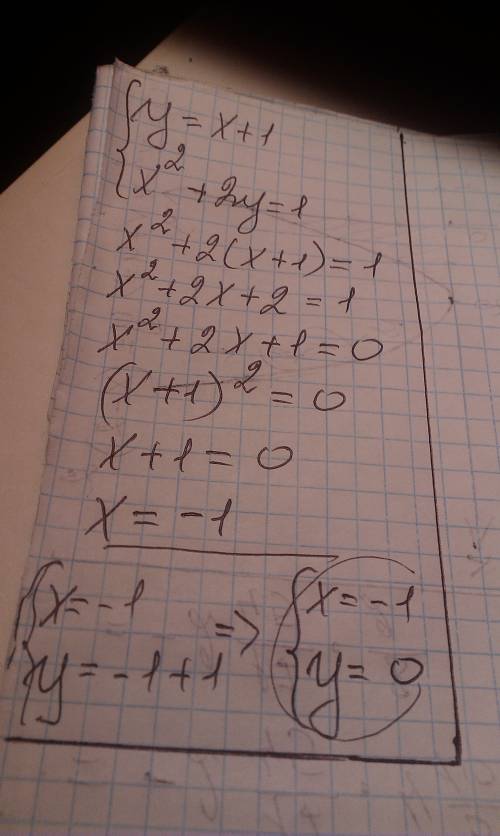 { y = x+1
x² + 2y = 1
x² + 2(x+1) = 1
x² + 2x + 2 = 1
x² + 2x + 1 = 0
(x+1)² = 0
x + 1 = 0
x = -1
{ x = -1 => { x = -1
y = -1+1 y = 0